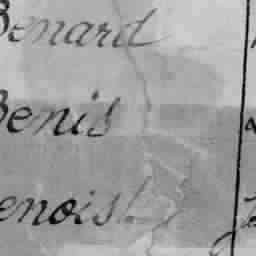 Benard
Benis
enoist